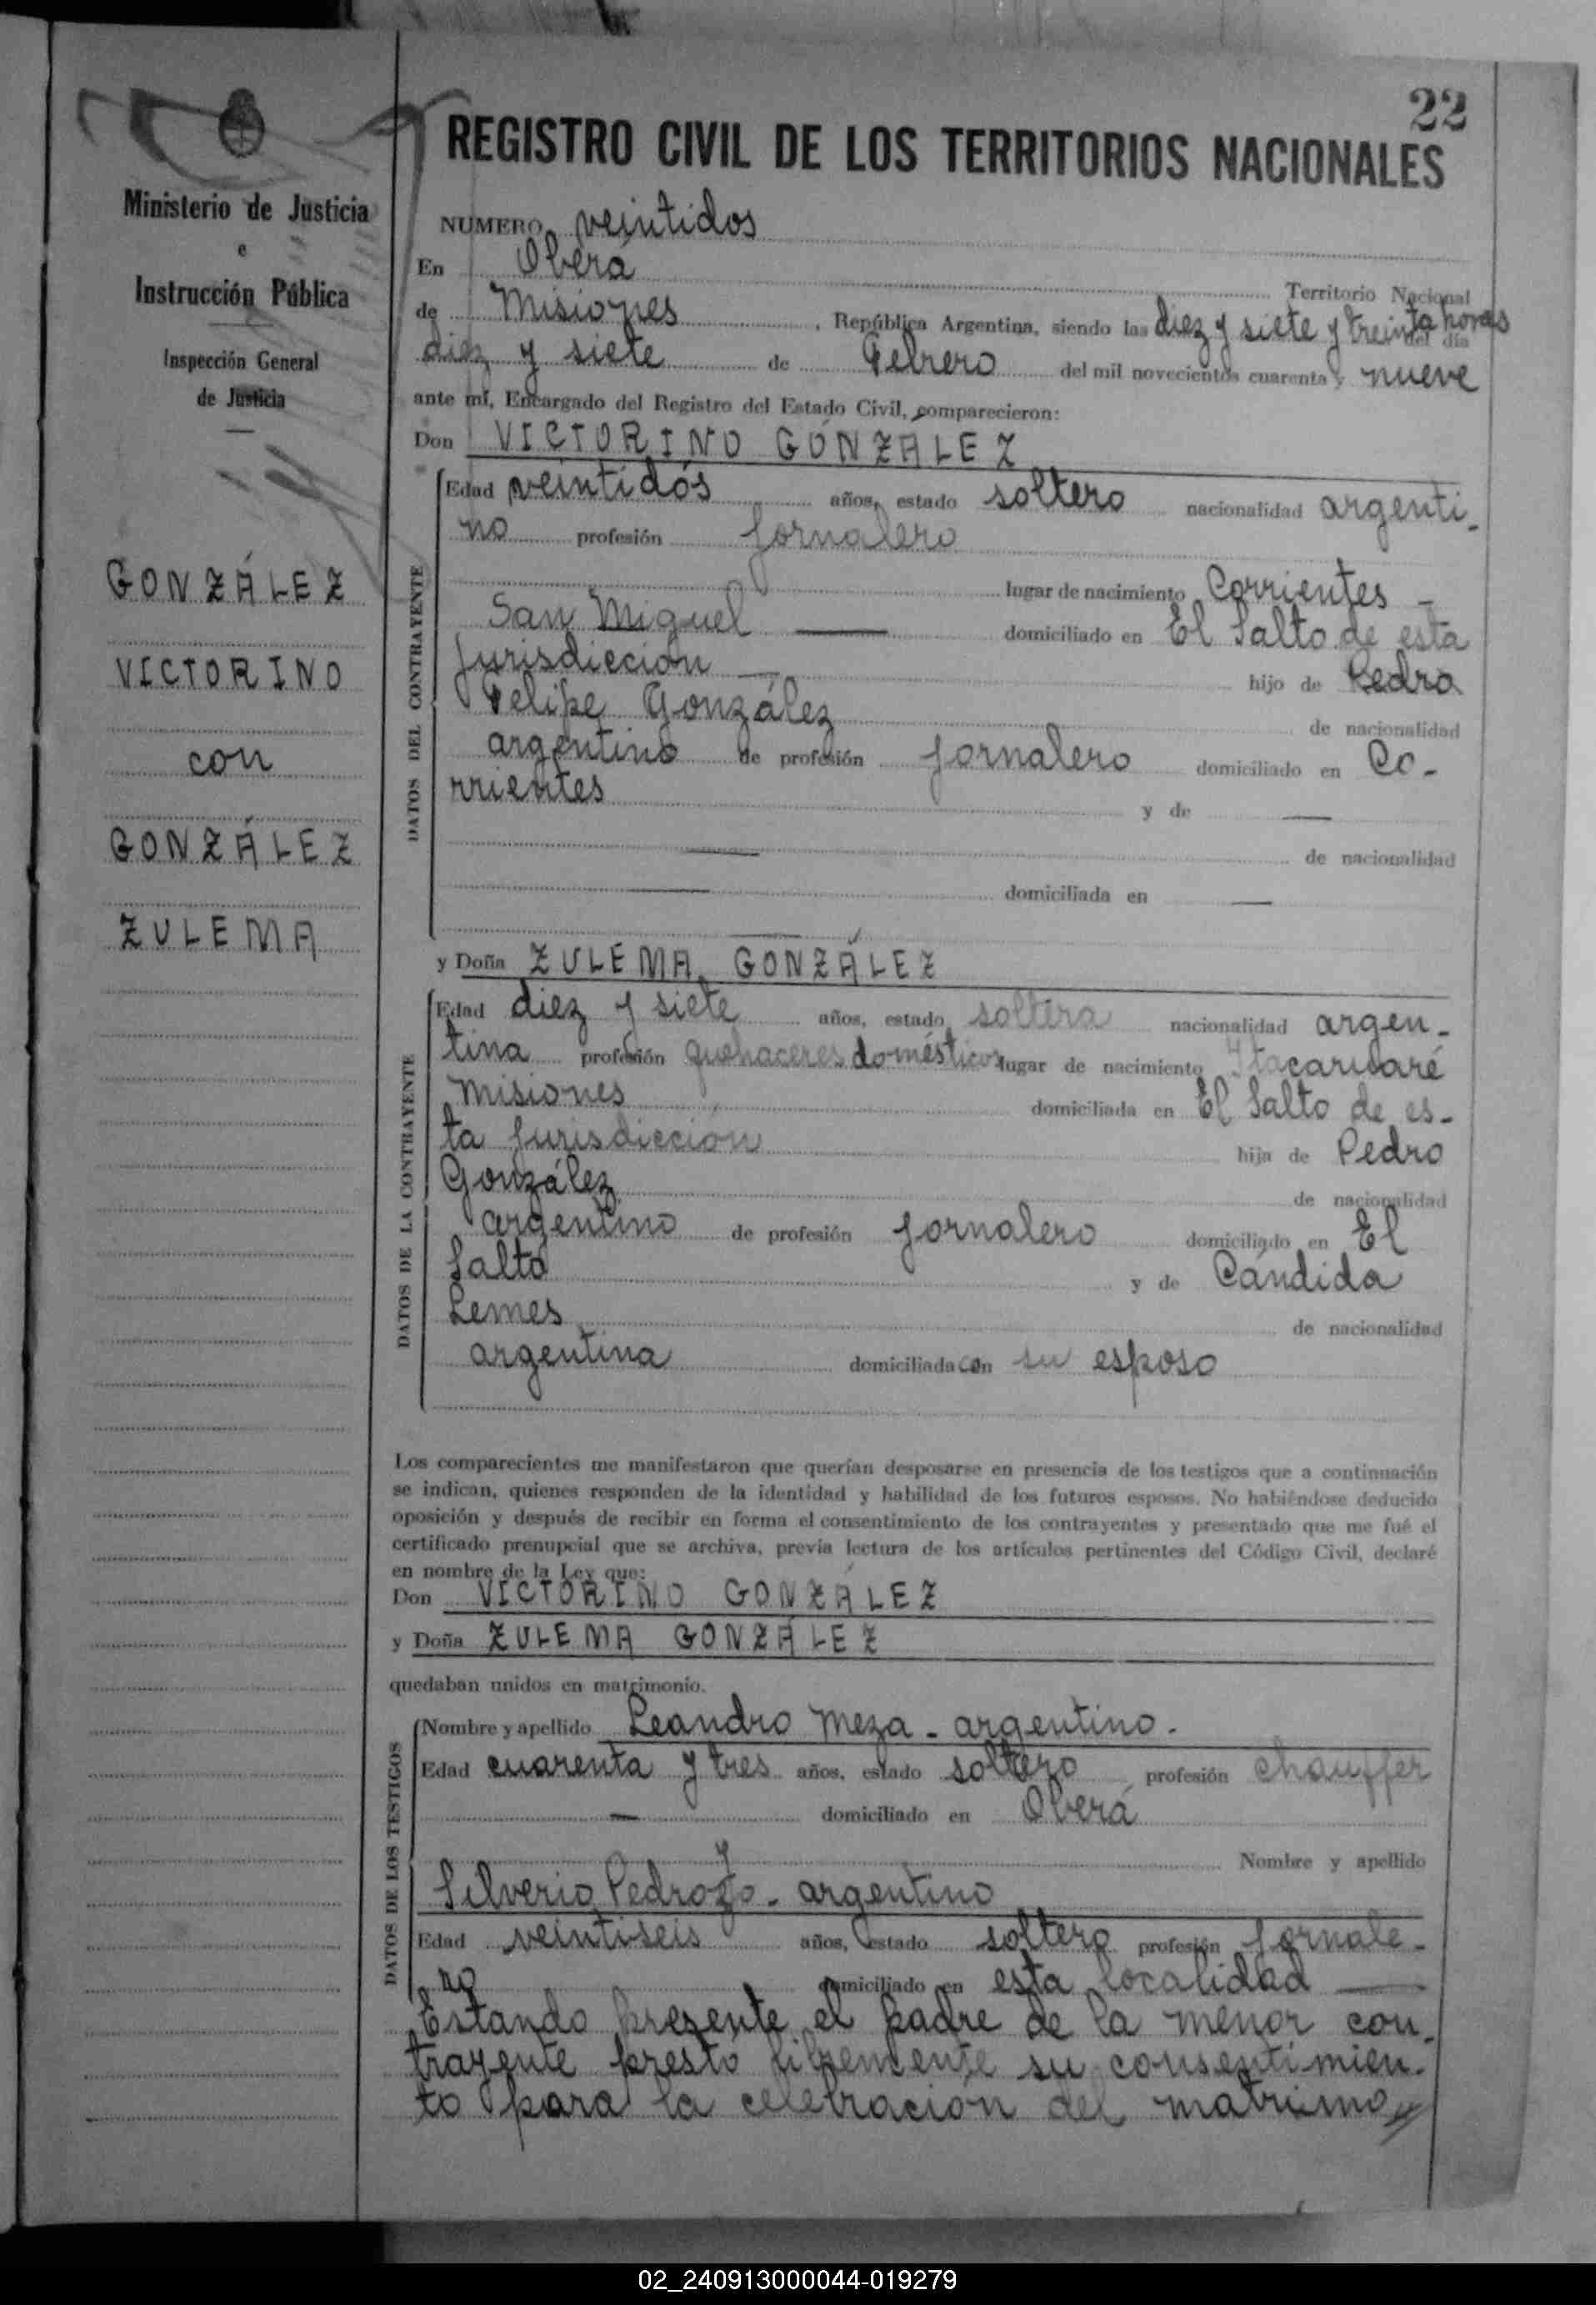 22
REGISTRO CIVIL DE LOS TERRITORIOS NACIONALES
Ministerio de Justicia
e
Instrucción Pública
Inspección General
de Justicia
GONZÁLEZ
VICTORINO
con
GONZÁLEZ
ZULEMA
NUMERO veintidos
En Oberá Territorio Nacional
de Misiones, República Argentina, siendo las diez y siete y treinta horas del día
diez y siete de Febrero del mil novecientos cuarenta y nueve
ante mí, Encargado del Registro del Estado Civil, comparecieron:
Don VICTORINO GONZALEZ
DATOS DEL CONTRAYENTE
Edad veintidós años, estado soltero nacionalidad argenti-
no profesión jornalero
lugar de nacimiento Corrientes -
San Miguel — domiciliado en El Salto de esta
jurisdicción — hijo de Pedro
Felipe González de nacionalidad
argentino de profesión jornalero domiciliado en Co-
rrientes y de —
— de nacionalidad
— domiciliada en —
—
y Doña ZULEMA GONZÁLEZ
DATOS DE LA CONTRAYENTE
Edad diez y siete años, estado soltera nacionalidad argen-
tina profesión quehaceres domésticos lugar de nacimiento Itacaruaré
Misiones domiciliada en El Salto de es-
ta jurisdicción hija de Pedro
González de nacionalidad
argentino de profesión jornalero domiciliado en El
Salto y de Cándida
Lemes de nacionalidad
argentina domiciliada con su esposo
Los comparecientes me manifestaron que querían desposarse en presencia de los testigos que a continuación
se indican, quienes responden de la identidad y habilidad de los futuros esposos. No habiéndose deducido
oposición y después de recibir en forma el consentimiento de los contrayentes y presentado que me fué el
certificado prenupcial que se archiva, previa lectura de los artículos pertinentes del Código Civil, declaré
en nombre de la Ley que:
Don VICTORINO GONZÁLEZ
y Doña ZULEMA GONZÁLEZ
quedaban unidos en matrimonio.
DATOS DE LOS TESTIGOS
Nombre y apellido Leandro Meza - argentino.
Edad cuarenta y tres años, estado soltero profesión chauffer
— domiciliado en Oberá
y Nombre y apellido
Silverio Pedrozo - argentino
Edad veintiseis años, estado soltero profesión jornale-
ro domiciliado en esta localidad —
Estando presente el padre de la menor con-
trayente prestó libremente su consentimien-
to para la celebración del matrimo//
02_240913000044-019279